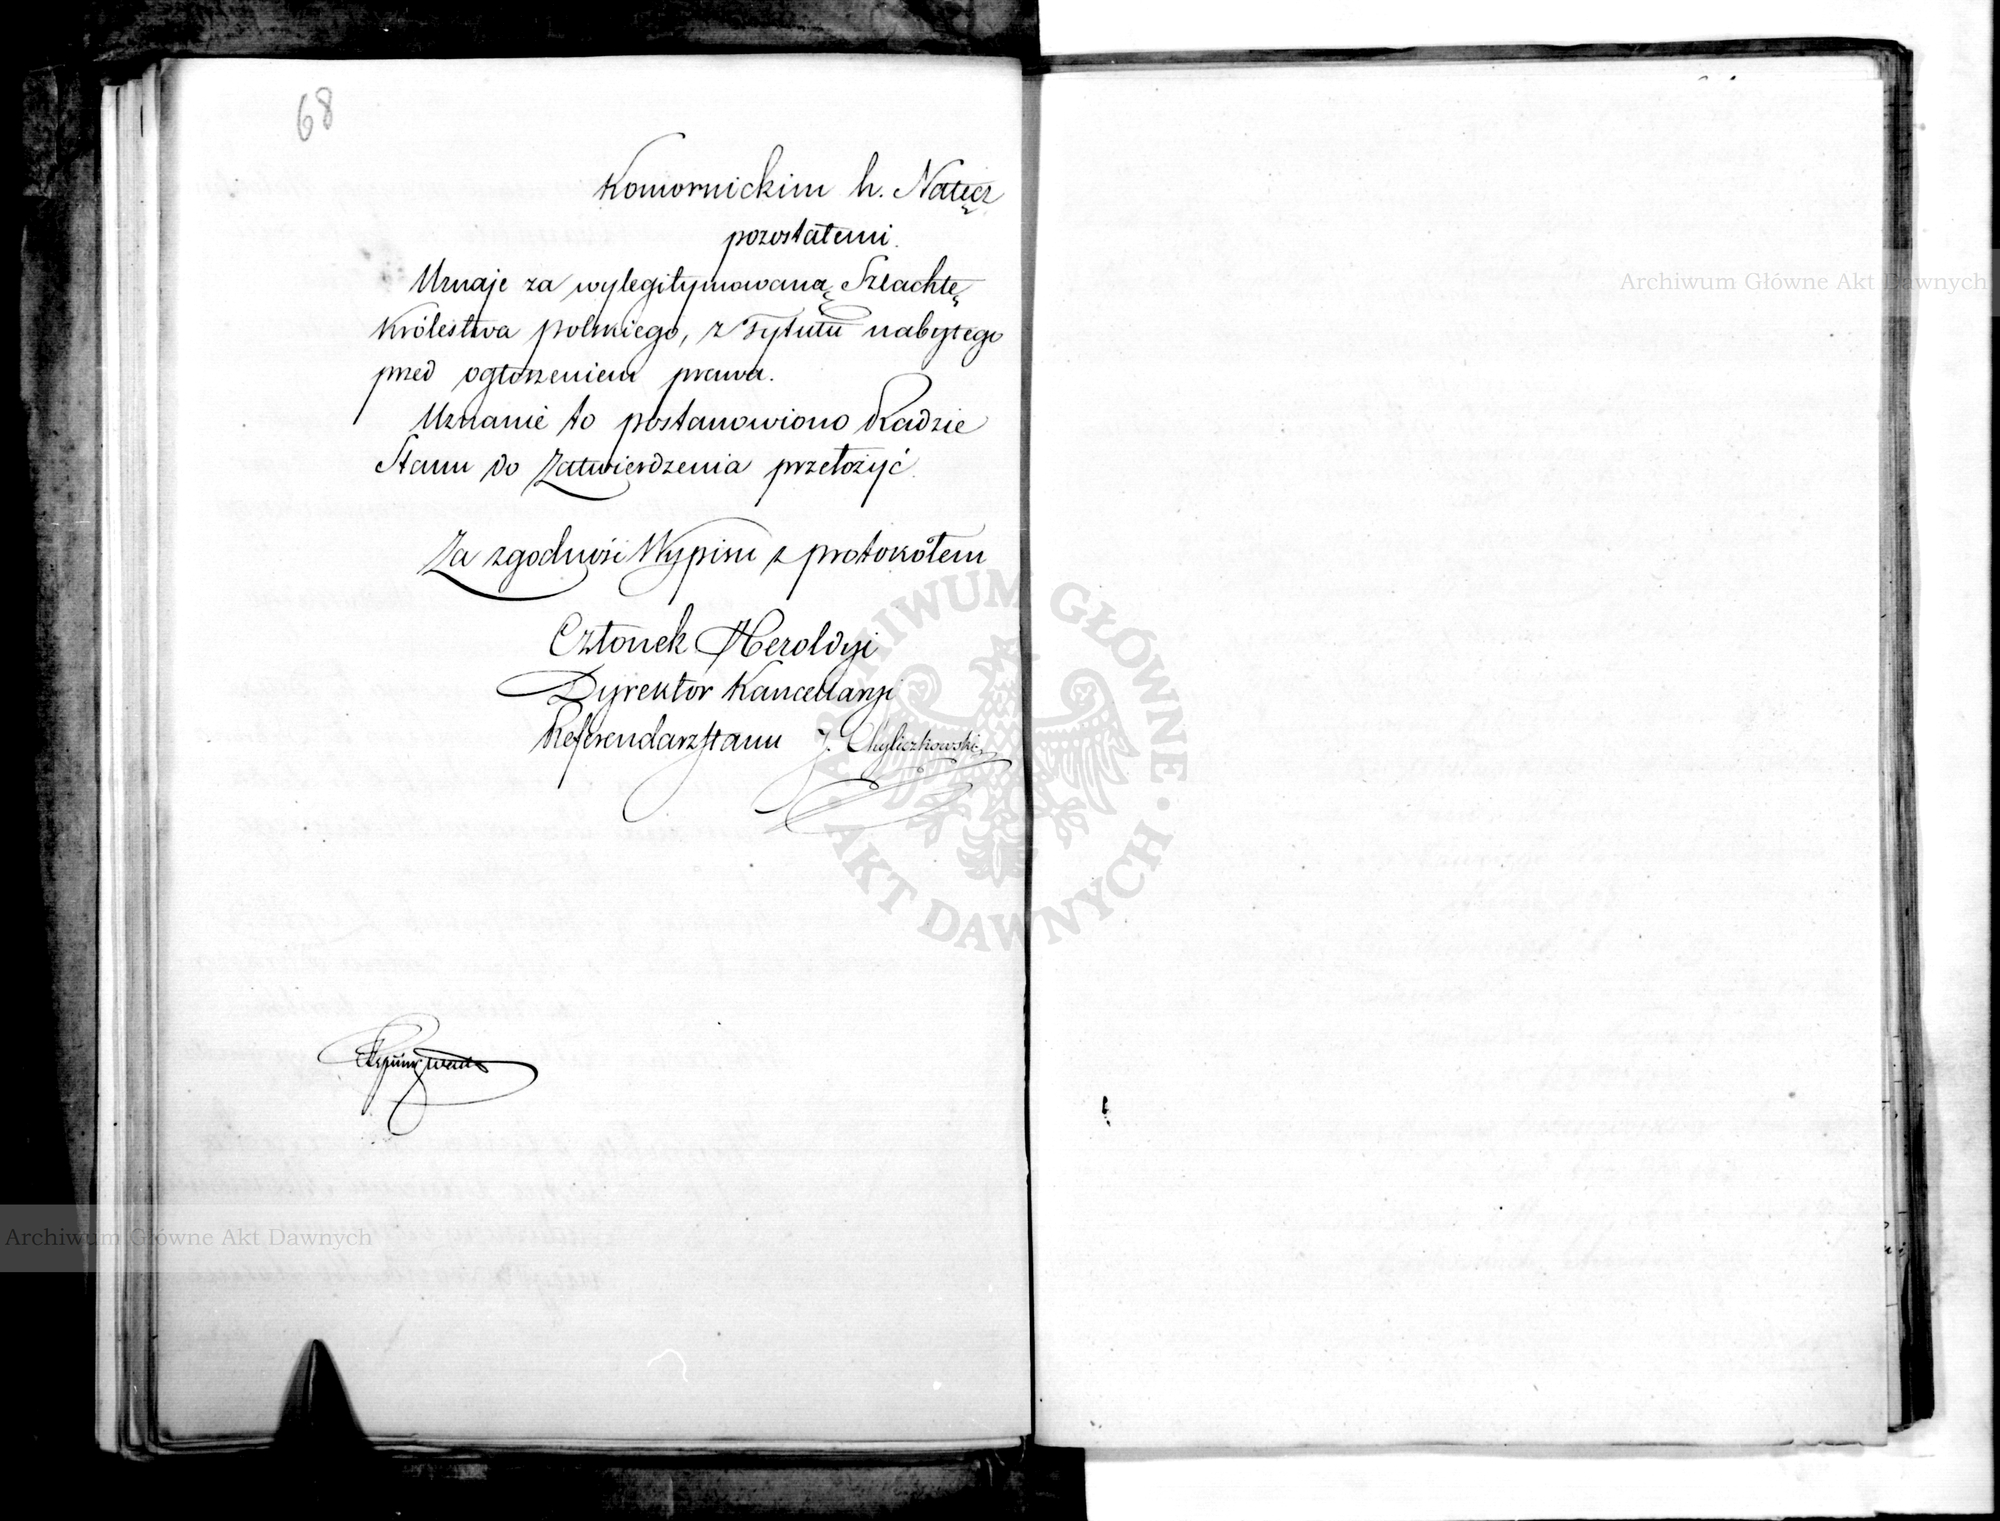 68
Komornickim h. Nałęcz
pozostałemi.
Uznaje za wylegitymowaną Szlachtę
Królestwa polskiego, z Tytułu nabytego
przed ogłoszeniem prawa.
Uznanie to postanowiono Radzie
Stanu do Zatwierdzenia przełożyć.
Za zgodność Wypisu z protokołem
Członek Heroldyi
Dyrektor Kancellaryi
Referendarz Stanu J. Chyliczkowski
Archiwum Główne Akt Dawnych
Archiwum Główne Akt Dawnych
ARCHIWUM GŁÓWNE · AKT DAWNYCH ·